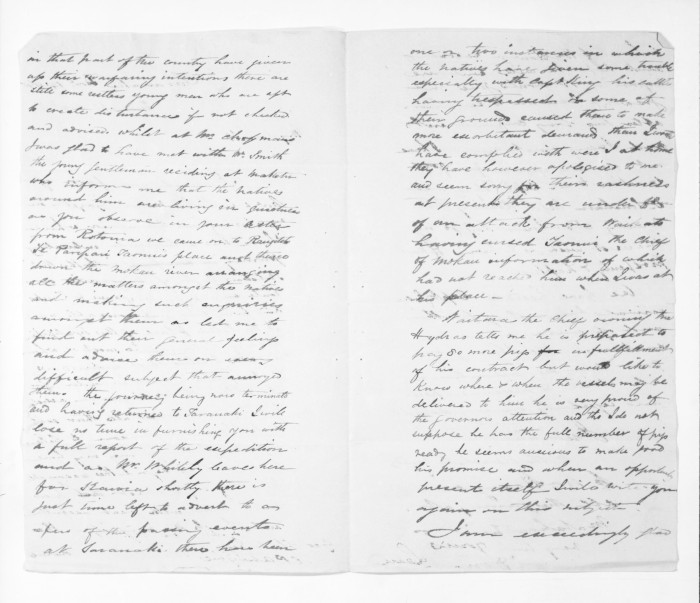 in that part of the country have given
up their warfaring intentions there are
still some restless young men who are apt
to create disturbances if not checked
and advised whilst at Mr
I was glad to have met with Mr Smith
the young Gentleman residing at
who informs me that the Natives
around him are living in quietness
as you observe in your letter
from Rotorua we came on to
Te Paripari Taonuis place and thence
down the Mokau river arranging
all the matters amongst the Natives
and making such enquiries
amongst them as led me to
find out their general feelings
and advise them on each
difficult subject that annoyed
them the journey being now terminated
and having returned to Taranaki I will
lose no time in furnishing you with
a full report of the expedition
and as Mr Whitely leaves here
for Kawia shortly there is
just time left to advert to an
of the passing events
at Taranaki there have been
one or two instances in which
the Natives have given some trouble
especially with Capt King his cattle
having trespassed on some of
their ground caused them to make
more exorbitant demand than I would
have complied with were I at home
they have however apologised to me
and seem sorry for their rashness
at present they are under
of an attack from Waikato
having caused Taonui the Chief
of Mokau information of which
had not reached him when I was at
his place -
Waitara the Chief owning the
Hydras tells me he is prepared to
pay 80 more pigs for in fulfillment
of his contract but would like to
know where & when the vessel may be
delivered to him he is very proud of
the governors attention and tho I do not
suppose he has the full number of pigs
ready he seems anxious to make good
his promise and when an opportunity
present itself I will write you
again on this subject
I am exceedingly glad